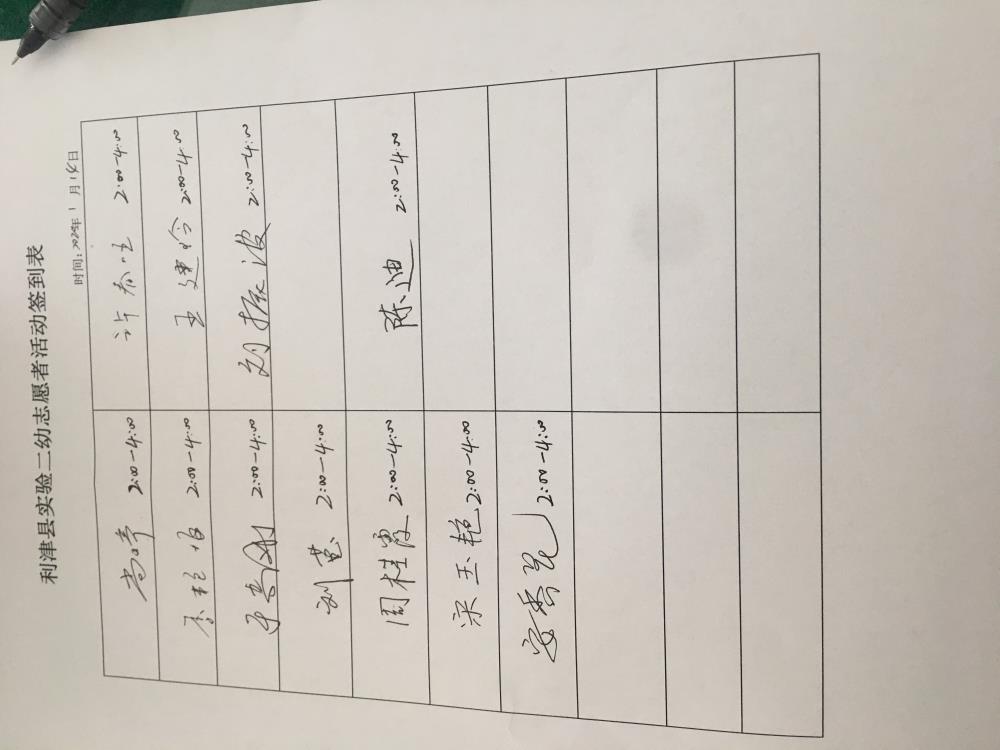 利津县实验二幼志愿者活动签到表
时间：2020年1月14日
尚婷 2:00-4:00 许春 2:00-4:00
李艳 2:00-4:00 王建玲 2:00-4:00
2:00-4:00 刘振波 2:00-4:00
刘英 2:00-4:00
周桂霞 2:00-4:00 陈迪 2:00-4:00
宋玉艳 2:00-4:00
安秀 2:00-4:00